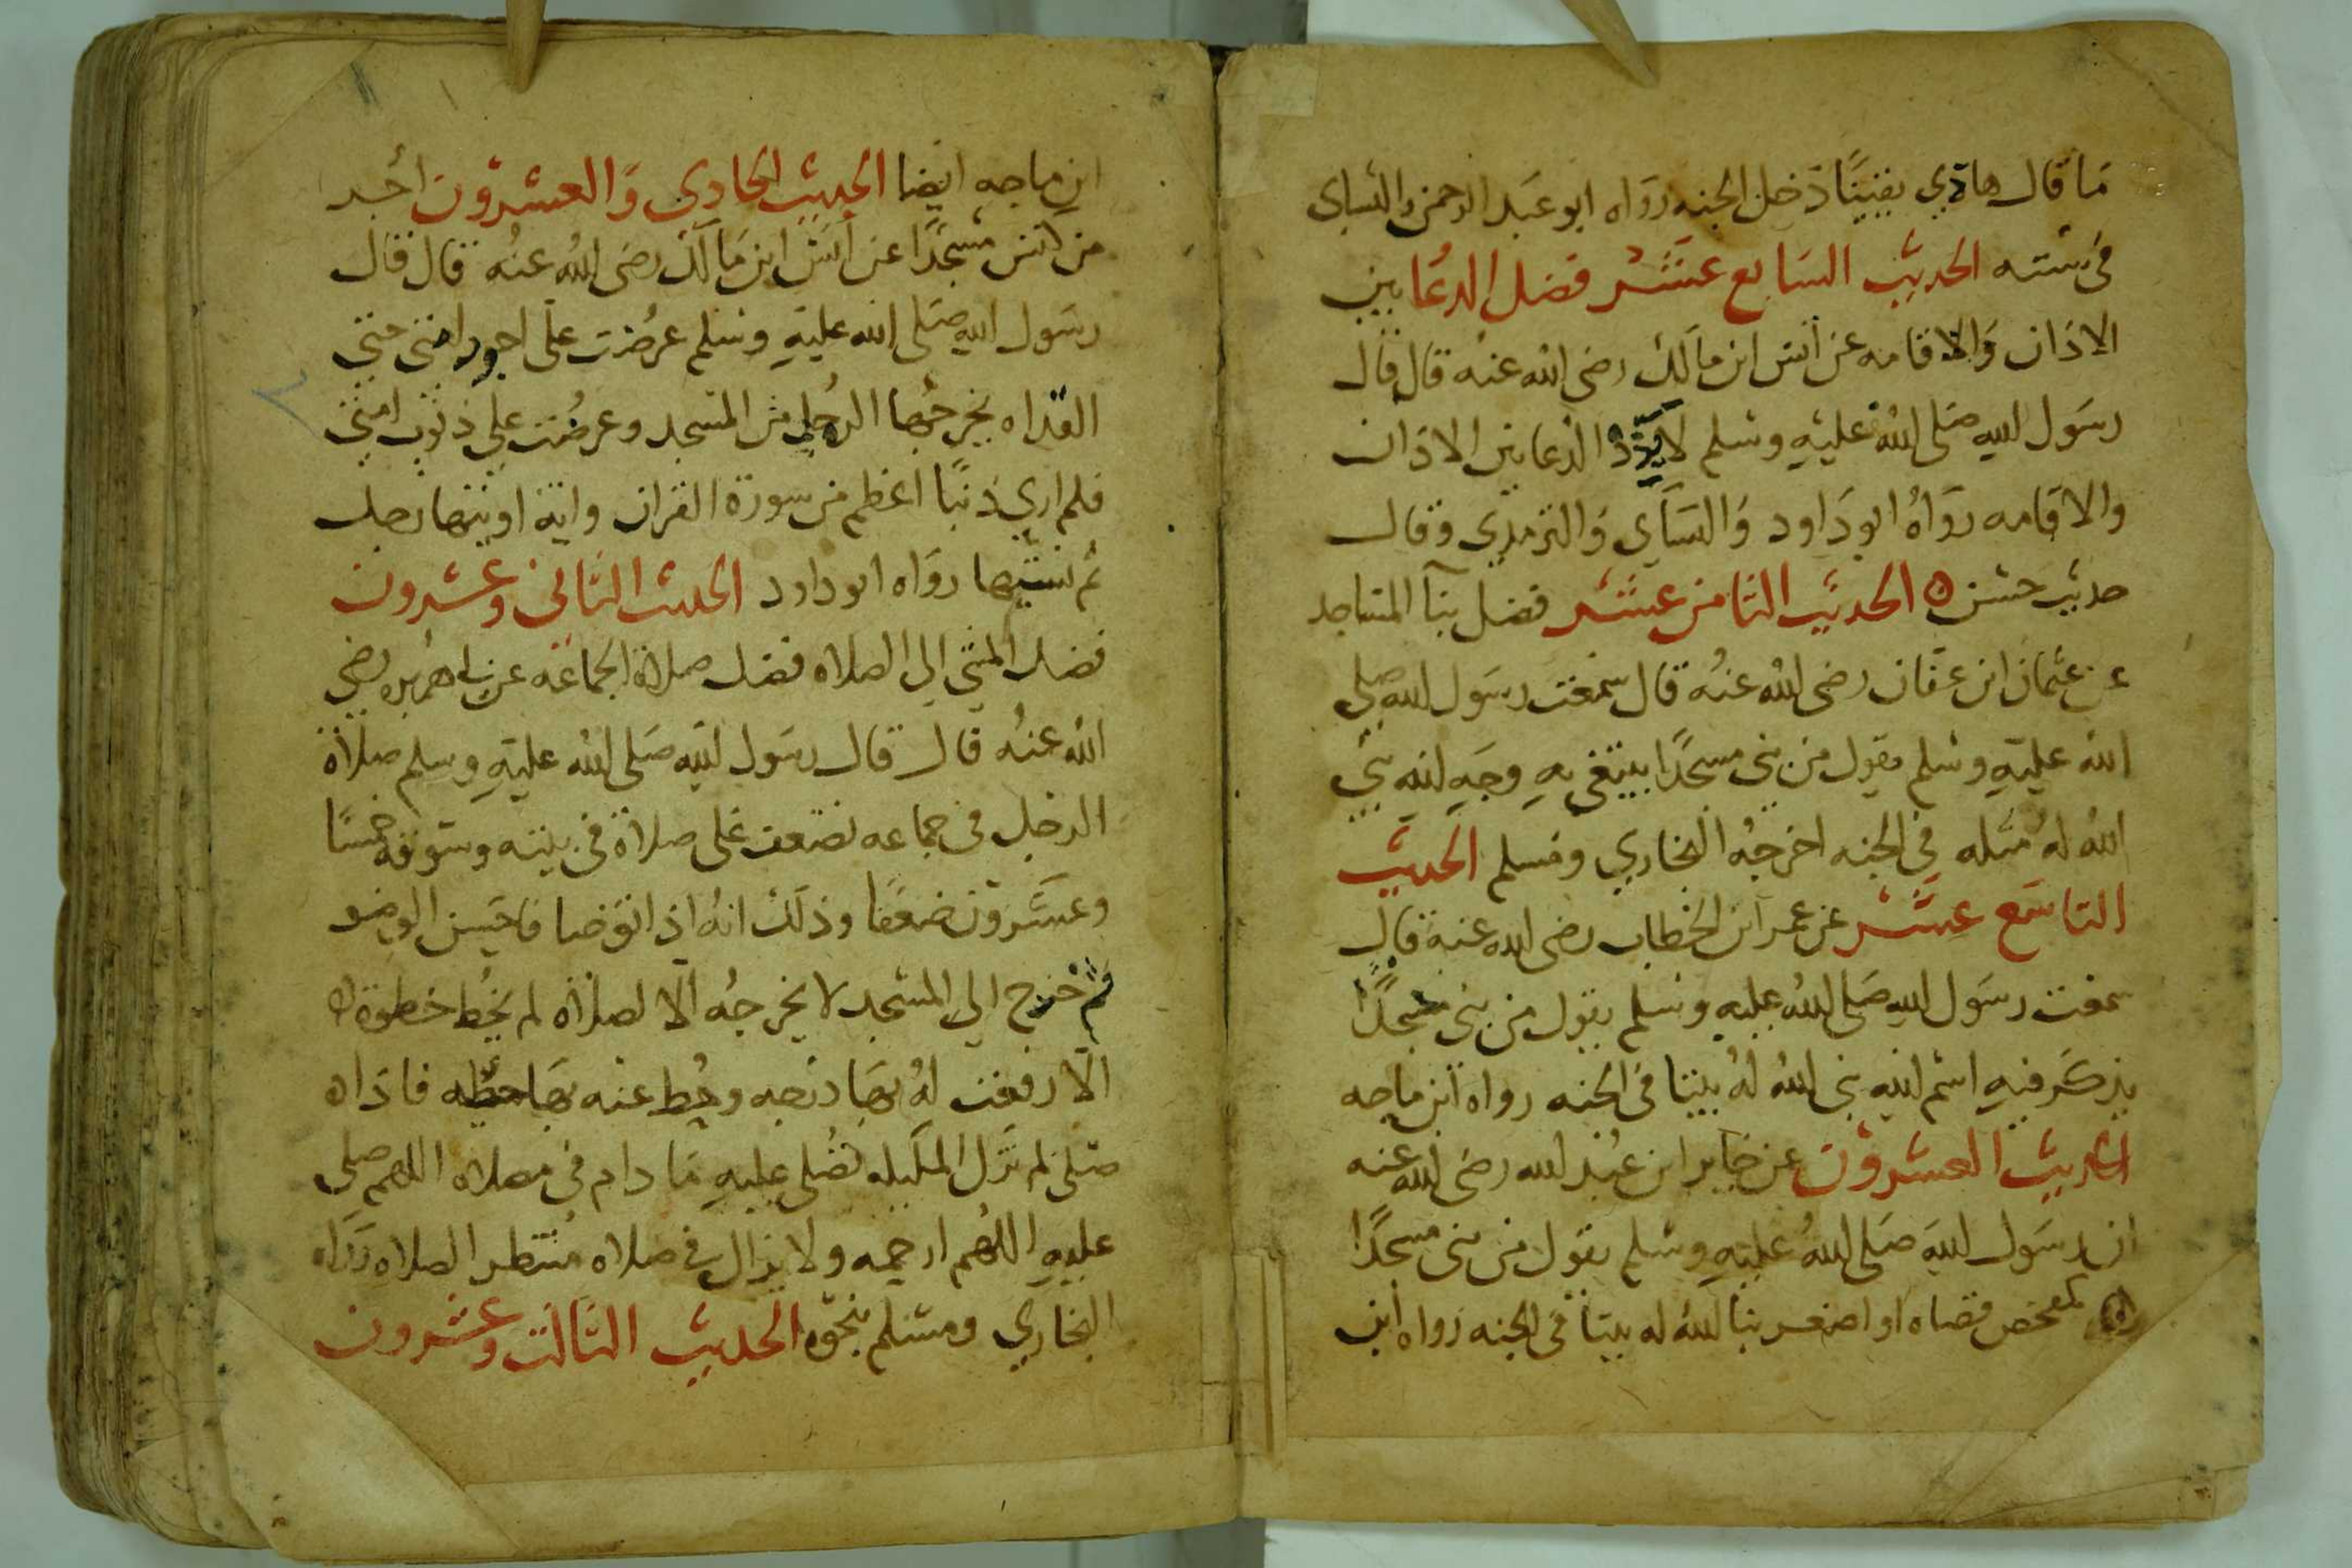 ما قال هاذي يقينًا دخل الجنه رواه ابو عبد الرحمن النساي
في سننه الحديث السابع عشر فضل الدعا بين
الاذان والاقامه عن انس ابن مالك رضي الله عنه قال قال
رسول الله صلى الله عليه وسلم لا يرد الدعا بين الاذان
والاقامه رواه ابو داود والنساي والترمدي وقال
حديث حسن ه الحديث الثامن عشر فضل بنا المساجد
عن عثمان ابن عفان رضي الله عنه قال سمعت رسول الله صلى
الله عليه وسلم يقول من بنى مسجدًا يبتغي به وجه الله بني
الله له مثله في الجنه اخرجه البخاري ومسلم الحديث
التاسع عشر عن عمر ابن الخطاب رضي الله عنه قال
سمعت رسول الله صلى الله عليه وسلم يقول من بنى مسجدًا
يذكر فيه اسم الله بنى الله له بيتا في الجنه رواه ابن ماجه
الحديث العشرون عن جابر ابن عبد الله رضي الله عنه
ان رسول الله صلى الله عليه وسلم يقول من بنى مسجدًا
كمفحص قضاه او اصغر بنا الله له بيتا في الجنه رواه ابن
ابن ماجه ايضا الحديث الحادي والعشرون اجر
من كنس مسجدًا عن انس ابن مالك رضي الله عنه قال قال
رسول الله صلى الله عليه وسلم عرضت على اجور امتي حتي
القداه يخرجها الرجل من المسجد وعرضت علي ذنوب امتي
فلم اري ذنبًا اعظم من سورة القران واية اوتيها رجل
ثم نسيها رواه ابو داود الحديث الثاني وعشرون
فضل المشي الي الصلاه فضل صلاة الجماعه عن ابي هريره رضي
الله عنه قال قال رسول الله صلى الله عليه وسلم صلاة
الرجل في جماعه تضعف على صلاة في بيته وسوقه خمسًا
وعشرون ضعفًا وذلك انه اذا توضا فاحسن الوضو
ثم خرج الي المسجد لا يخرجه الا لصلاة لم يخط خطوة
الا رفعت له بها درجه وحط عنه بها خطيه فاذا ه
صلى لم تزل المليكه تصلي عليه ما دام في مصلاه اللهم صلي
عليه اللهم ارحمه ولا يزال في صلاه منتظر الصلاه رواه
البخاري ومسلم بنحوه الحديث الثالث وعشرون